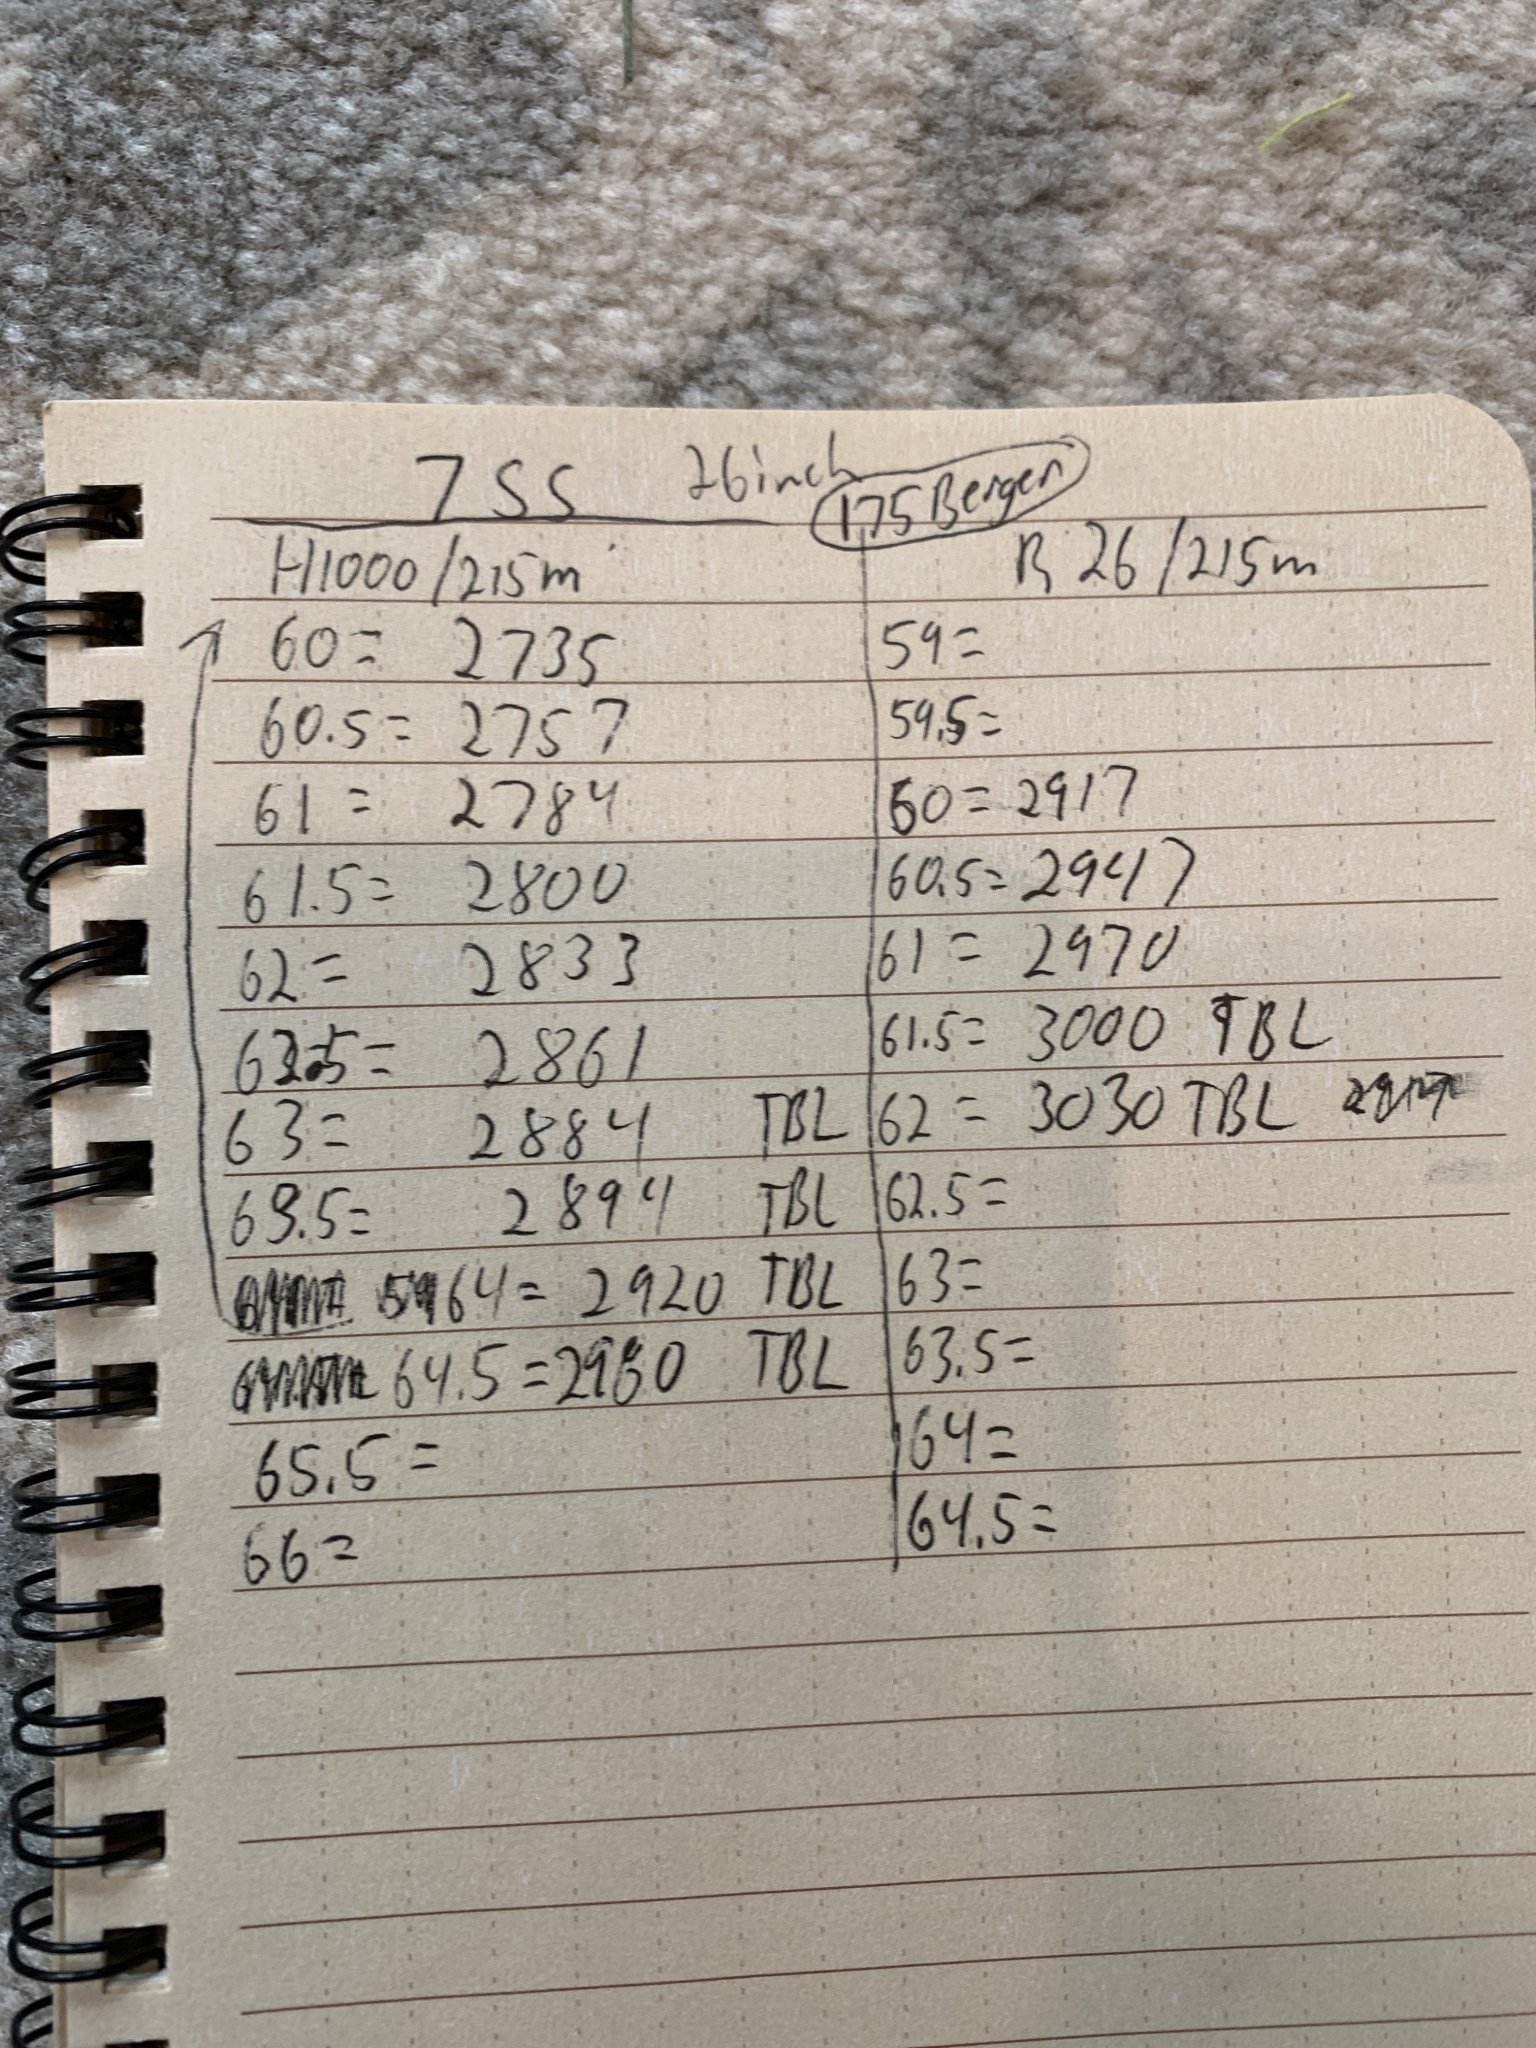 7SS 26inch 175 Bergen
H1000/215m R26/215m
60= 2735 59=
60.5= 2757 59.5=
61= 2784 60= 2917
61.5= 2800 60.5= 2947
62= 2833 61= 2970
62.5= 2861 61.5= 3000 TBL
63= 2884 TBL 62= 3030 TBL
63.5= 2894 TBL 62.5=
64= 2920 TBL 63=
64.5=2950 TBL 63.5=
65.5= 64=
66= 64.5=